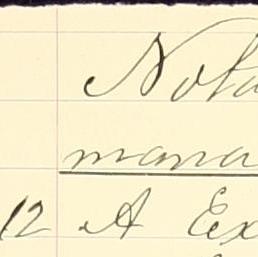 Nota
mana
12 A Ex